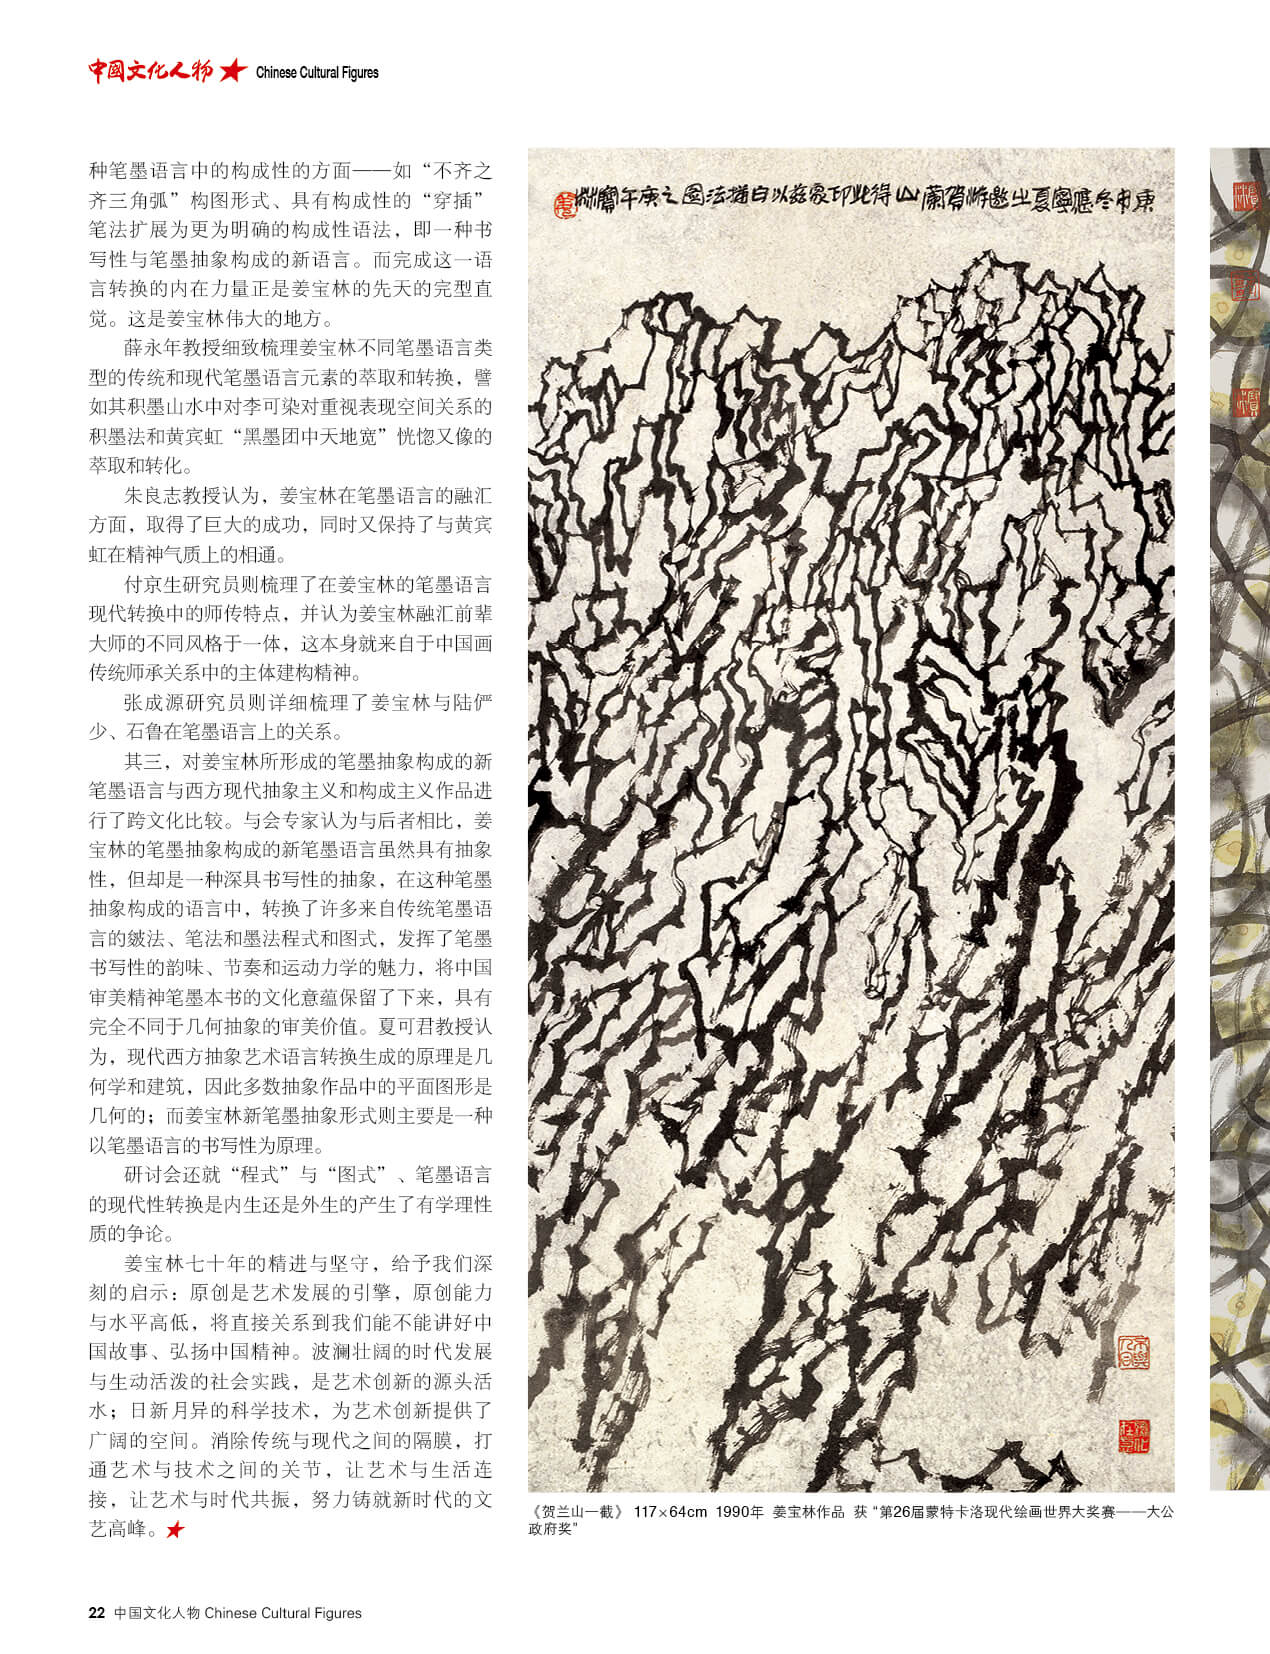 中國文化人物 Chinese Cultural Figures
种笔墨语言中的构成性的方面——如“不齐之
齐三角弧”构图形式、具有构成性的“穿插”
笔法扩展为更为明确的构成性语法，即一种书
写性与笔墨抽象构成的新语言。而完成这一语
言转换的内在力量正是姜宝林的先天的完型直
觉。这是姜宝林伟大的地方。
薛永年教授细致梳理姜宝林不同笔墨语言类
型的传统和现代笔墨语言元素的萃取和转换，譬
如其积墨山水中对李可染对重视表现空间关系的
积墨法和黄宾虹“黑墨团中天地宽”恍惚又像的
萃取和转化。
朱良志教授认为，姜宝林在笔墨语言的融汇
方面，取得了巨大的成功，同时又保持了与黄宾
虹在精神气质上的相通。
付京生研究员则梳理了在姜宝林的笔墨语言
现代转换中的师传特点，并认为姜宝林融汇前辈
大师的不同风格于一体，这本身就来自于中国画
传统师承关系中的主体建构精神。
张成源研究员则详细梳理了姜宝林与陆俨
少、石鲁在笔墨语言上的关系。
其三，对姜宝林所形成的笔墨抽象构成的新
笔墨语言与西方现代抽象主义和构成主义作品进
行了跨文化比较。与会专家认为与后者相比，姜
宝林的笔墨抽象构成的新笔墨语言虽然具有抽象
性，但却是一种深具书写性的抽象，在这种笔墨
抽象构成的语言中，转换了许多来自传统笔墨语
言的皴法、笔法和墨法程式和图式，发挥了笔墨
书写性的韵味、节奏和运动力学的魅力，将中国
审美精神笔墨本书的文化意蕴保留了下来，具有
完全不同于几何抽象的审美价值。夏可君教授认
为，现代西方抽象艺术语言转换生成的原理是几
何学和建筑，因此多数抽象作品中的平面图形是
几何的；而姜宝林新笔墨抽象形式则主要是一种
以笔墨语言的书写性为原理。
研讨会还就“程式”与“图式”、笔墨语言
的现代性转换是内生还是外生的产生了有学理性
质的争论。
姜宝林七十年的精进与坚守，给予我们深
刻的启示：原创是艺术发展的引擎，原创能力
与水平高低，将直接关系到我们能不能讲好中
国故事、弘扬中国精神。波澜壮阔的时代发展
与生动活泼的社会实践，是艺术创新的源头活
水；日新月异的科学技术，为艺术创新提供了
广阔的空间。消除传统与现代之间的隔膜，打
通艺术与技术之间的关节，让艺术与生活连
接，让艺术与时代共振，努力铸就新时代的文
艺高峰。
《贺兰山一截》 117×64cm 1990年 姜宝林作品 获“第26届蒙特卡洛现代绘画世界大奖赛——大公
政府奖”
22 中国文化人物 Chinese Cultural Figures